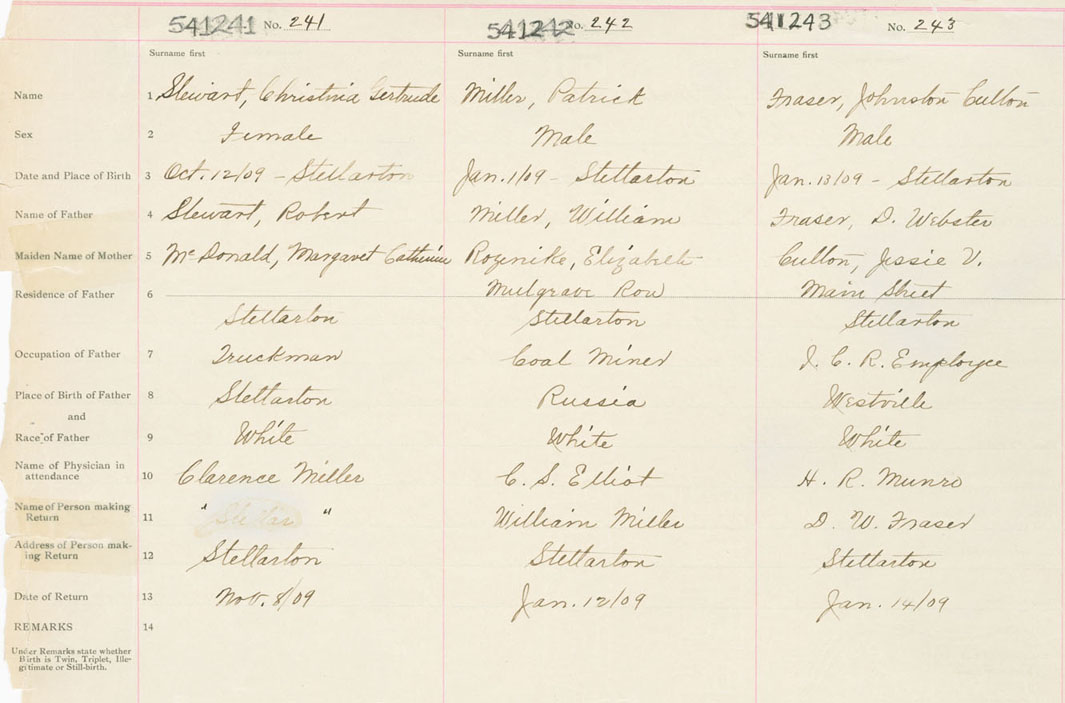 541241 No. 241 541242 No. 242 541243 No. 243
Surname first Surname first Surname first
Name 1 Stewart, Christina Gertrude Miller, Patrick Fraser, Johnston Cullon
Sex 2 Female Male Male
Date and Place of Birth 3 Oct. 12/09 - Stellarton Jan. 1/09 - Stellarton Jan. 13/09 - Stellarton
Name of Father 4 Stewart, Robert Miller, William Fraser, D. Webster
Maiden Name of Mother 5 McDonald, Margaret Catherine Rozinike, Elizabeth Cullon, Jessie V.
Residence of Father 6 Mulgrave Row Main Street
Stellarton Stellarton Stellarton
Occupation of Father 7 Truckman Coal Miner I. C. R. Employee
Place of Birth of Father 8 Stellarton Russia Westville
and
Race of Father 9 White White White
Name of Physician in
attendance 10 Clarence Miller C. S. Elliot H. R. Munro
Name of Person making
Return 11 " " William Miller D. W. Fraser
Address of Person mak-
ing Return 12 Stellarton Stellarton Stellarton
Date of Return 13 Nov. 8/09 Jan. 12/09 Jan. 14/09
REMARKS 14
Under Remarks state whether
Birth is Twin, Triplet, Ille-
gitimate or Still-birth.